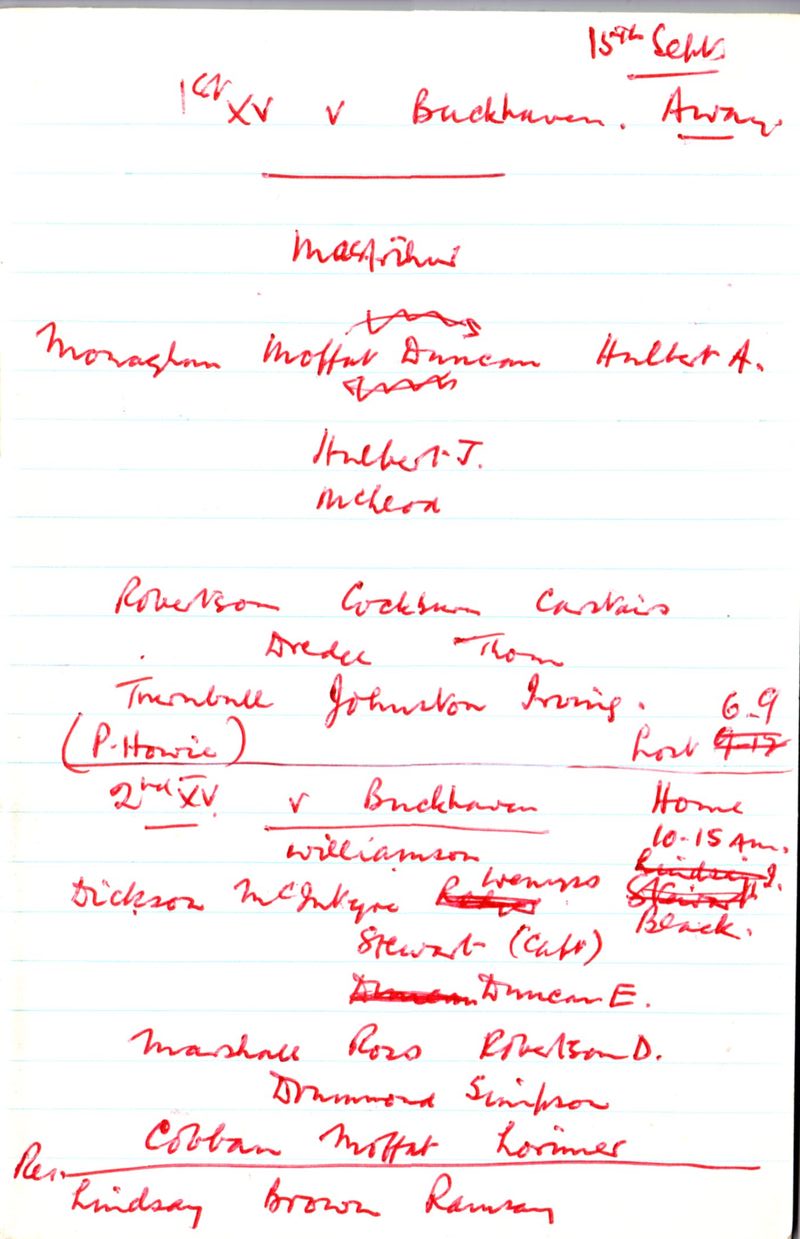 15th Sept.
1st XV v Buckhaven. Away.
MacArthur
Monaghan Moffat Duncan Hulbert A.
Hulbert J.
McLeod
Robertson Cockburn Carstairs
Dredge Thom
Turnbull Johnston Irving. 6-9
(P. Howie) Lost 9-12
2nd XV. v Buckhaven Home
10-15 Am.
Williamson Lindsay J.
Dickson McIntyre Wemyss Stewart
Black.
Stewart (Capt)
Duncan Duncan E.
Marshall Ross Robertson D.
Drummond Simpson
Cobban Moffat Lorimer
Res.
Lindsay Brown Ramsay